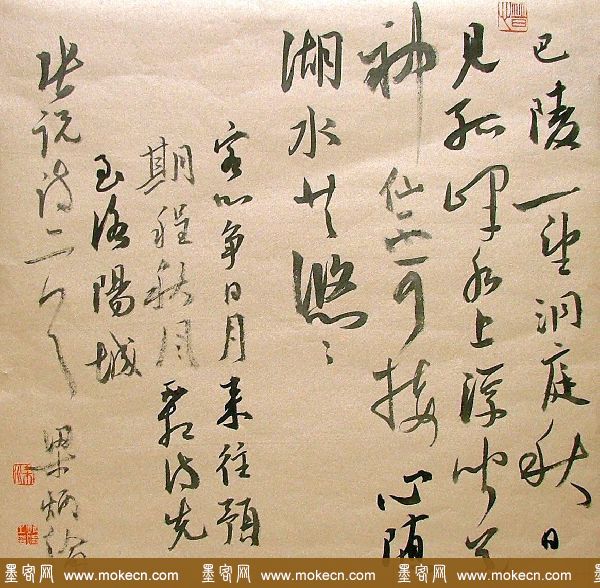 巴陵一望洞庭秋日
见孤峰水上浮闻道
神仙不可接心随
湖水共悠悠
客心争日月来往预
期程秋风不相待先
至洛阳城
张说诗二首
梁炳伦
墨客网 www.mokecn.com 墨客网 www.mokecn.com 墨客网 www.mokecn.com